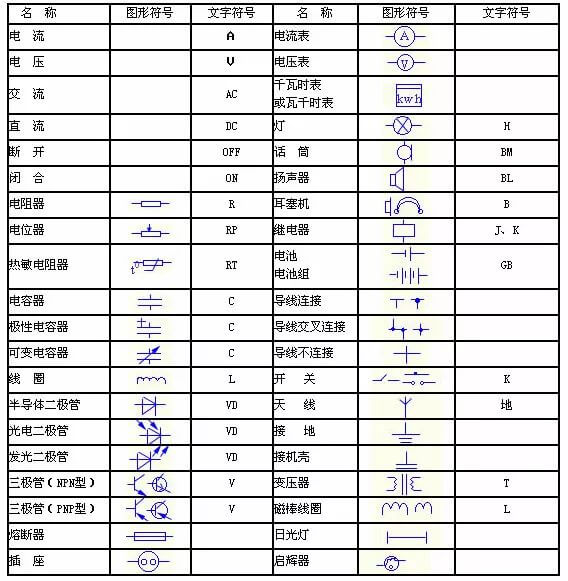 名 称 图形符号 文字符号 名 称 图形符号 文字符号
电 流 A 电流表 A
电 压 V 电压表 V
交 流 AC 千瓦时表
或瓦千时表 kwh
直 流 DC 灯 H
断 开 OFF 话 筒 BM
闭 合 ON 扬声器 BL
电阻器 R 耳塞机 B
电位器 RP 继电器 J、K
热敏电阻器 t° RT 电池
电池组 GB
电容器 C 导线连接
极性电容器 C 导线交叉连接
可变电容器 C 导线不连接
线 圈 L 开 关 K
半导体二极管 VD 天 线 地
光电二极管 VD 接 地
发光二极管 VD 接机壳
三极管(NPN型) V 变压器 T
三极管(PNP型) V 磁棒线圈 L
熔断器 日光灯
插 座 启辉器